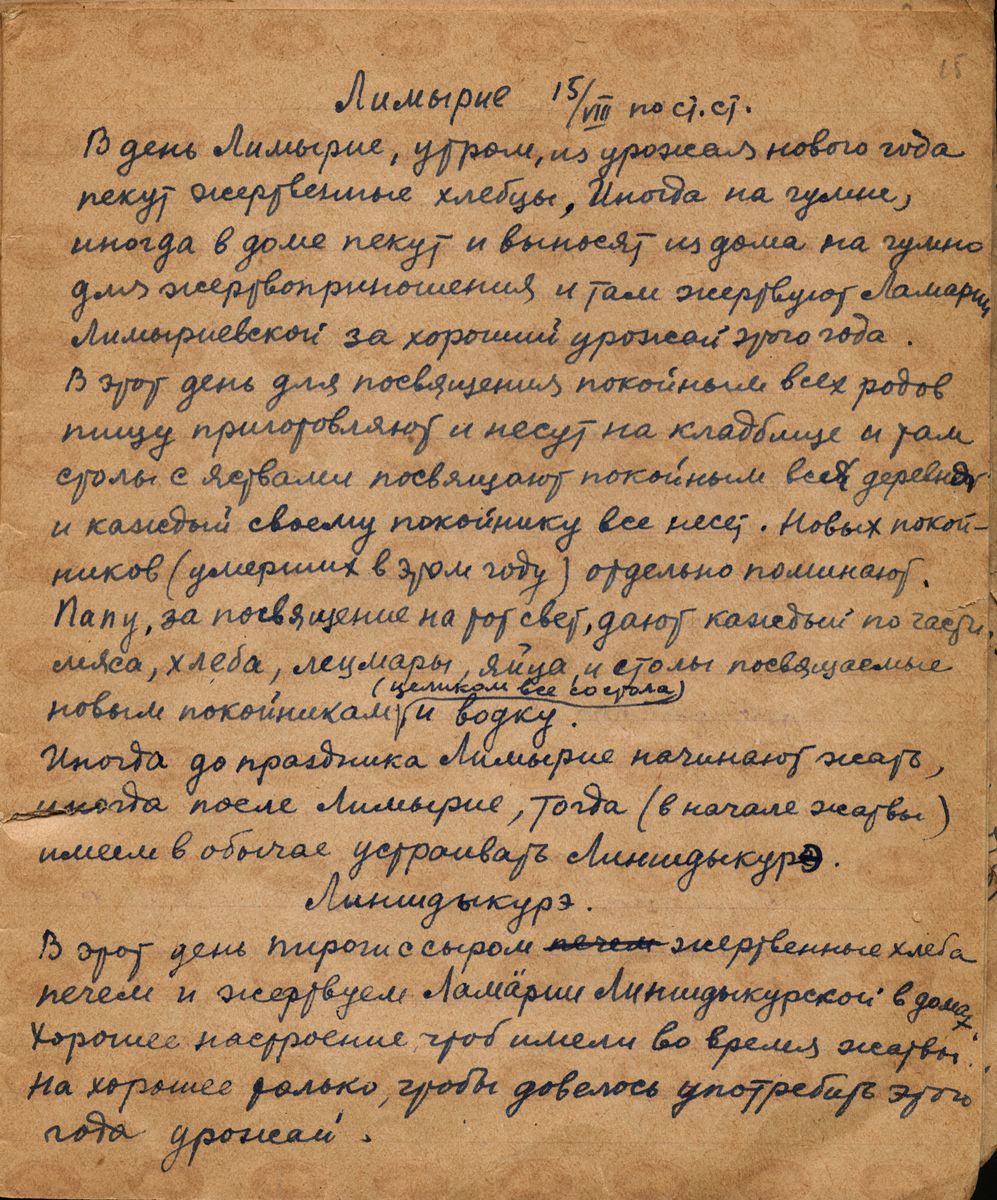 15
Лимырие 15/VIII по ст. ст.
В день Лимырие, утром, из урожая нового года
пекут жертвенные хлебцы, Иногда на гумне,
иногда в доме пекут и выносят из дома на гумно
для жертвоприношения и там жертвуют Ламарии
Лимыриевской за хороший урожай этого года.
В этот день для посвящения покойным всех родов
пищу приготовляют и несут на кладбище и там
столы с яствами посвящают покойным всей деревни
и каждый своему покойнику все несет. Новых покой-
ников (умерших в этом году) отдельно поминают.
Папу, за посвящение на тот свет, дают каждый по части
мяса, хлеба, лецмары, яйца, и столы посвящаемые
(целиком все со стола)
новым покойникам и водку.
Иногда до праздника Лимырие начинают жать,
иногда после Лимырие, тогда (в начале жатвы)
имеем в обычае устраивать Линшдыкурэ.
Линшдыкурэ.
В этот день пироги с сыром печем жертвенные хлеба
печем и жертвуем Ламäрии Линшдыкурской в домах.
Хорошее настроение чтоб имели во время жатвы.
На хорошее только, чтобы довелось употребить этого
года урожай.